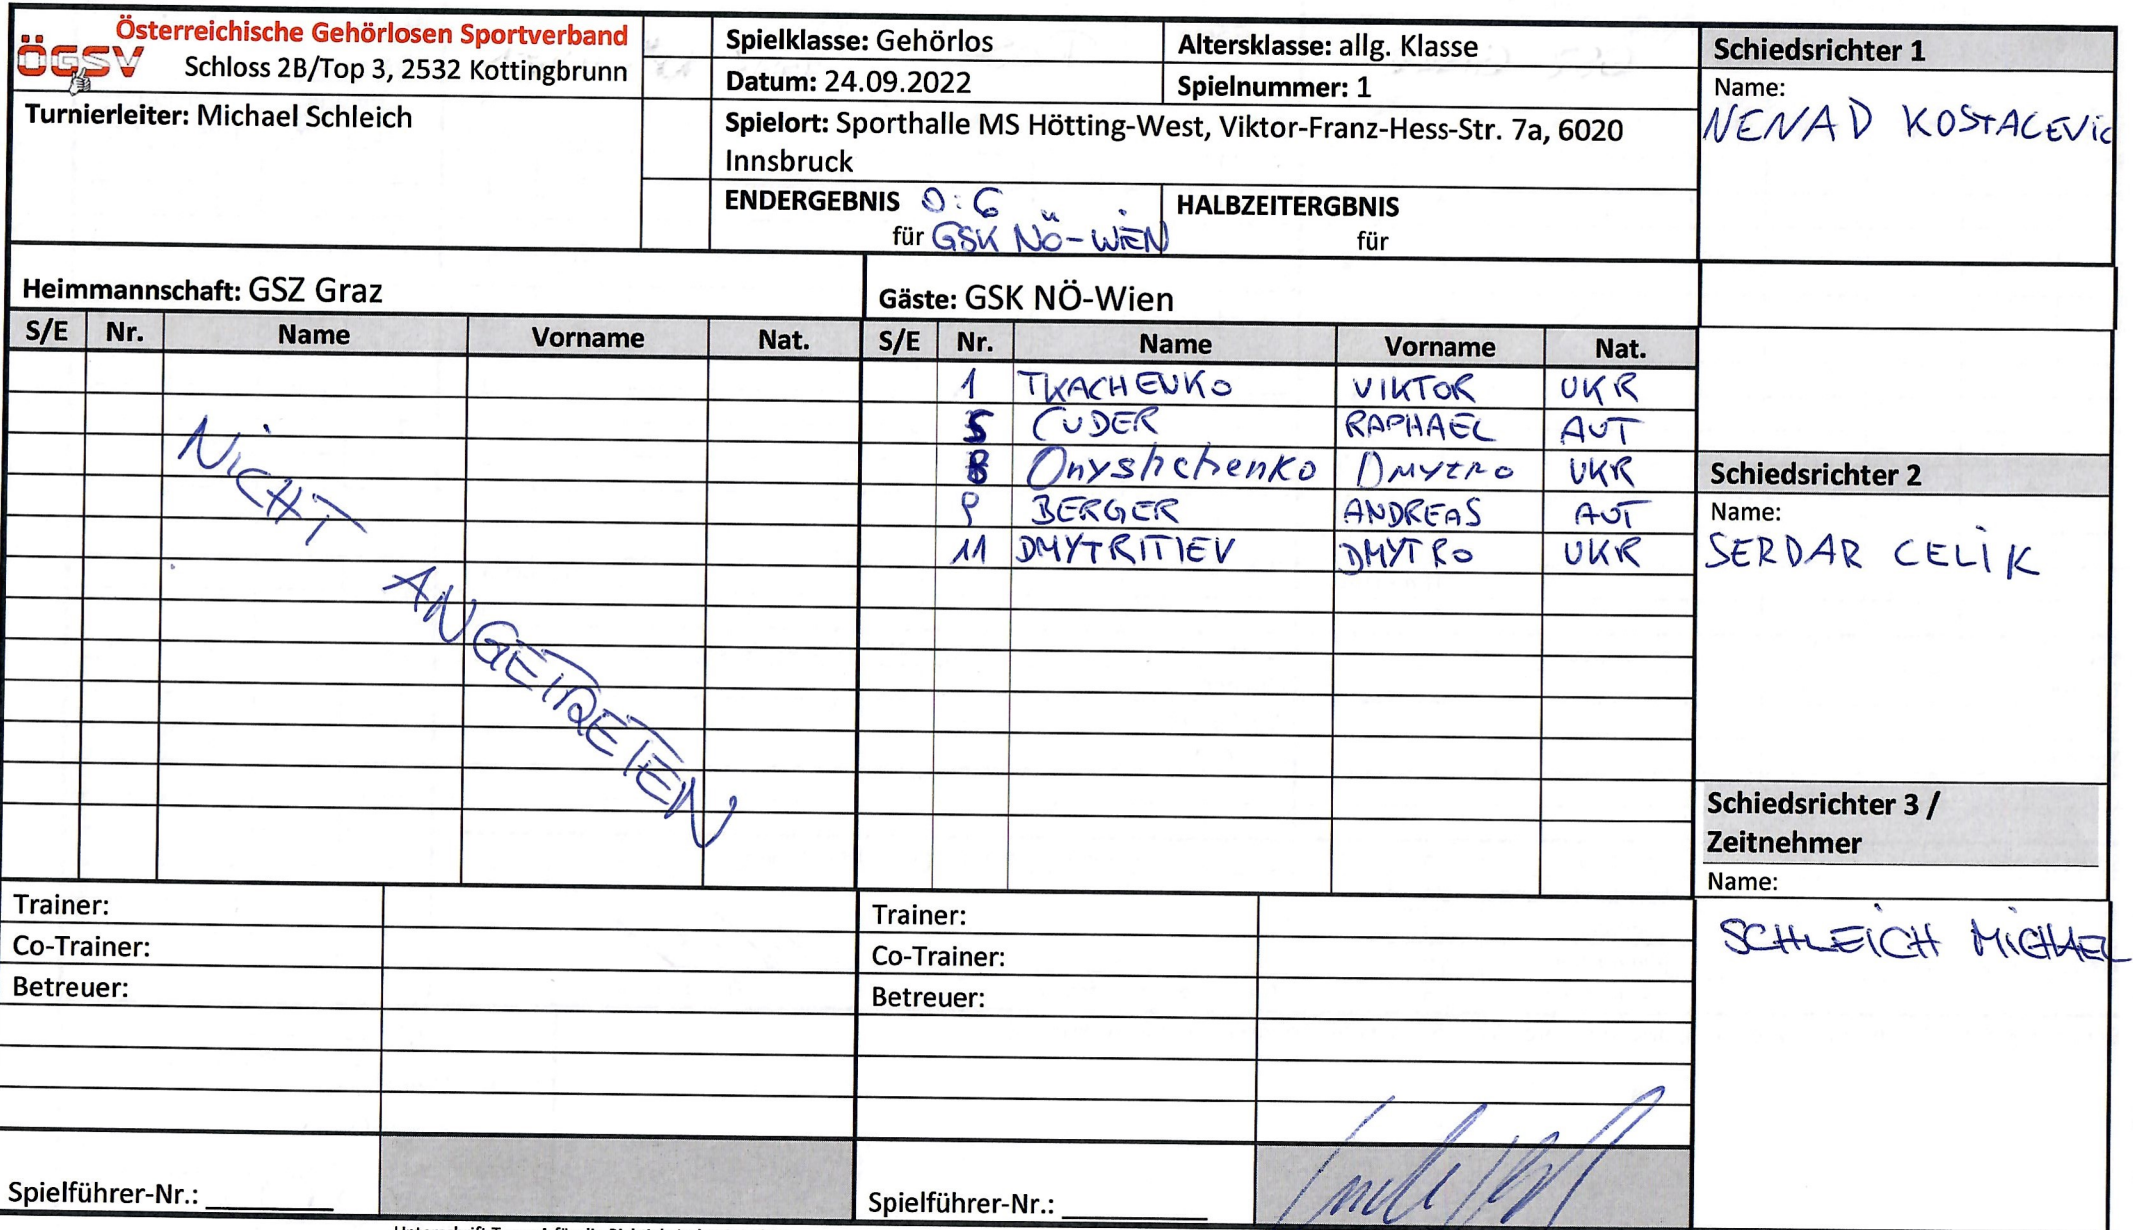 Österreichische Gehörlosen Sportverband
ÖGSV
Schloss 2B/Top 3, 2532 Kottingbrunn
Turnierleiter: Michael Schleich
Spielklasse: Gehörlos
Altersklasse: allg. Klasse
Datum: 24.09.2022
Spielnummer: 1
Spielort: Sporthalle MS Hötting-West, Viktor-Franz-Hess-Str. 7a, 6020
Innsbruck
ENDERGEBNIS 0:6
für GSK NÖ-WIEN
HALBZEITERGBNIS
für
Schiedsrichter 1
Name:
NENAD KOSTACEVIC
Heimmannschaft: GSZ Graz
Gäste: GSK NÖ-Wien
S/E Nr. Name Vorname Nat.
S/E Nr. Name Vorname Nat.
NICHT ANGETRETEN
1 TKACHENKO VIKTOR UKR
5 CUDER RAPHAEL AUT
8 Onyshchenko Dmytro UKR
9 BERGER ANDREAS AUT
11 DMYTRITIEV DMYTRO UKR
Schiedsrichter 2
Name:
SERDAR CELIK
Schiedsrichter 3 /
Zeitnehmer
Name:
SCHLEICH MICHAEL
Trainer:
Co-Trainer:
Betreuer:
Spielführer-Nr.:
Trainer:
Co-Trainer:
Betreuer:
Spielführer-Nr.: